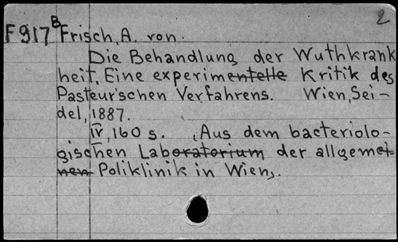 2
F917 B Frisch, A. von.
Die Behandlung der Wuthkrank
heit. Eine experimentelle Kritik des
Pasteur'schen Verfahrens. Wien, Sei-
del, 1887.
IV, 160 s. (Aus dem bacteriolo-
gischen Laboratorium der allgemei-
nen Poliklinik in Wien).